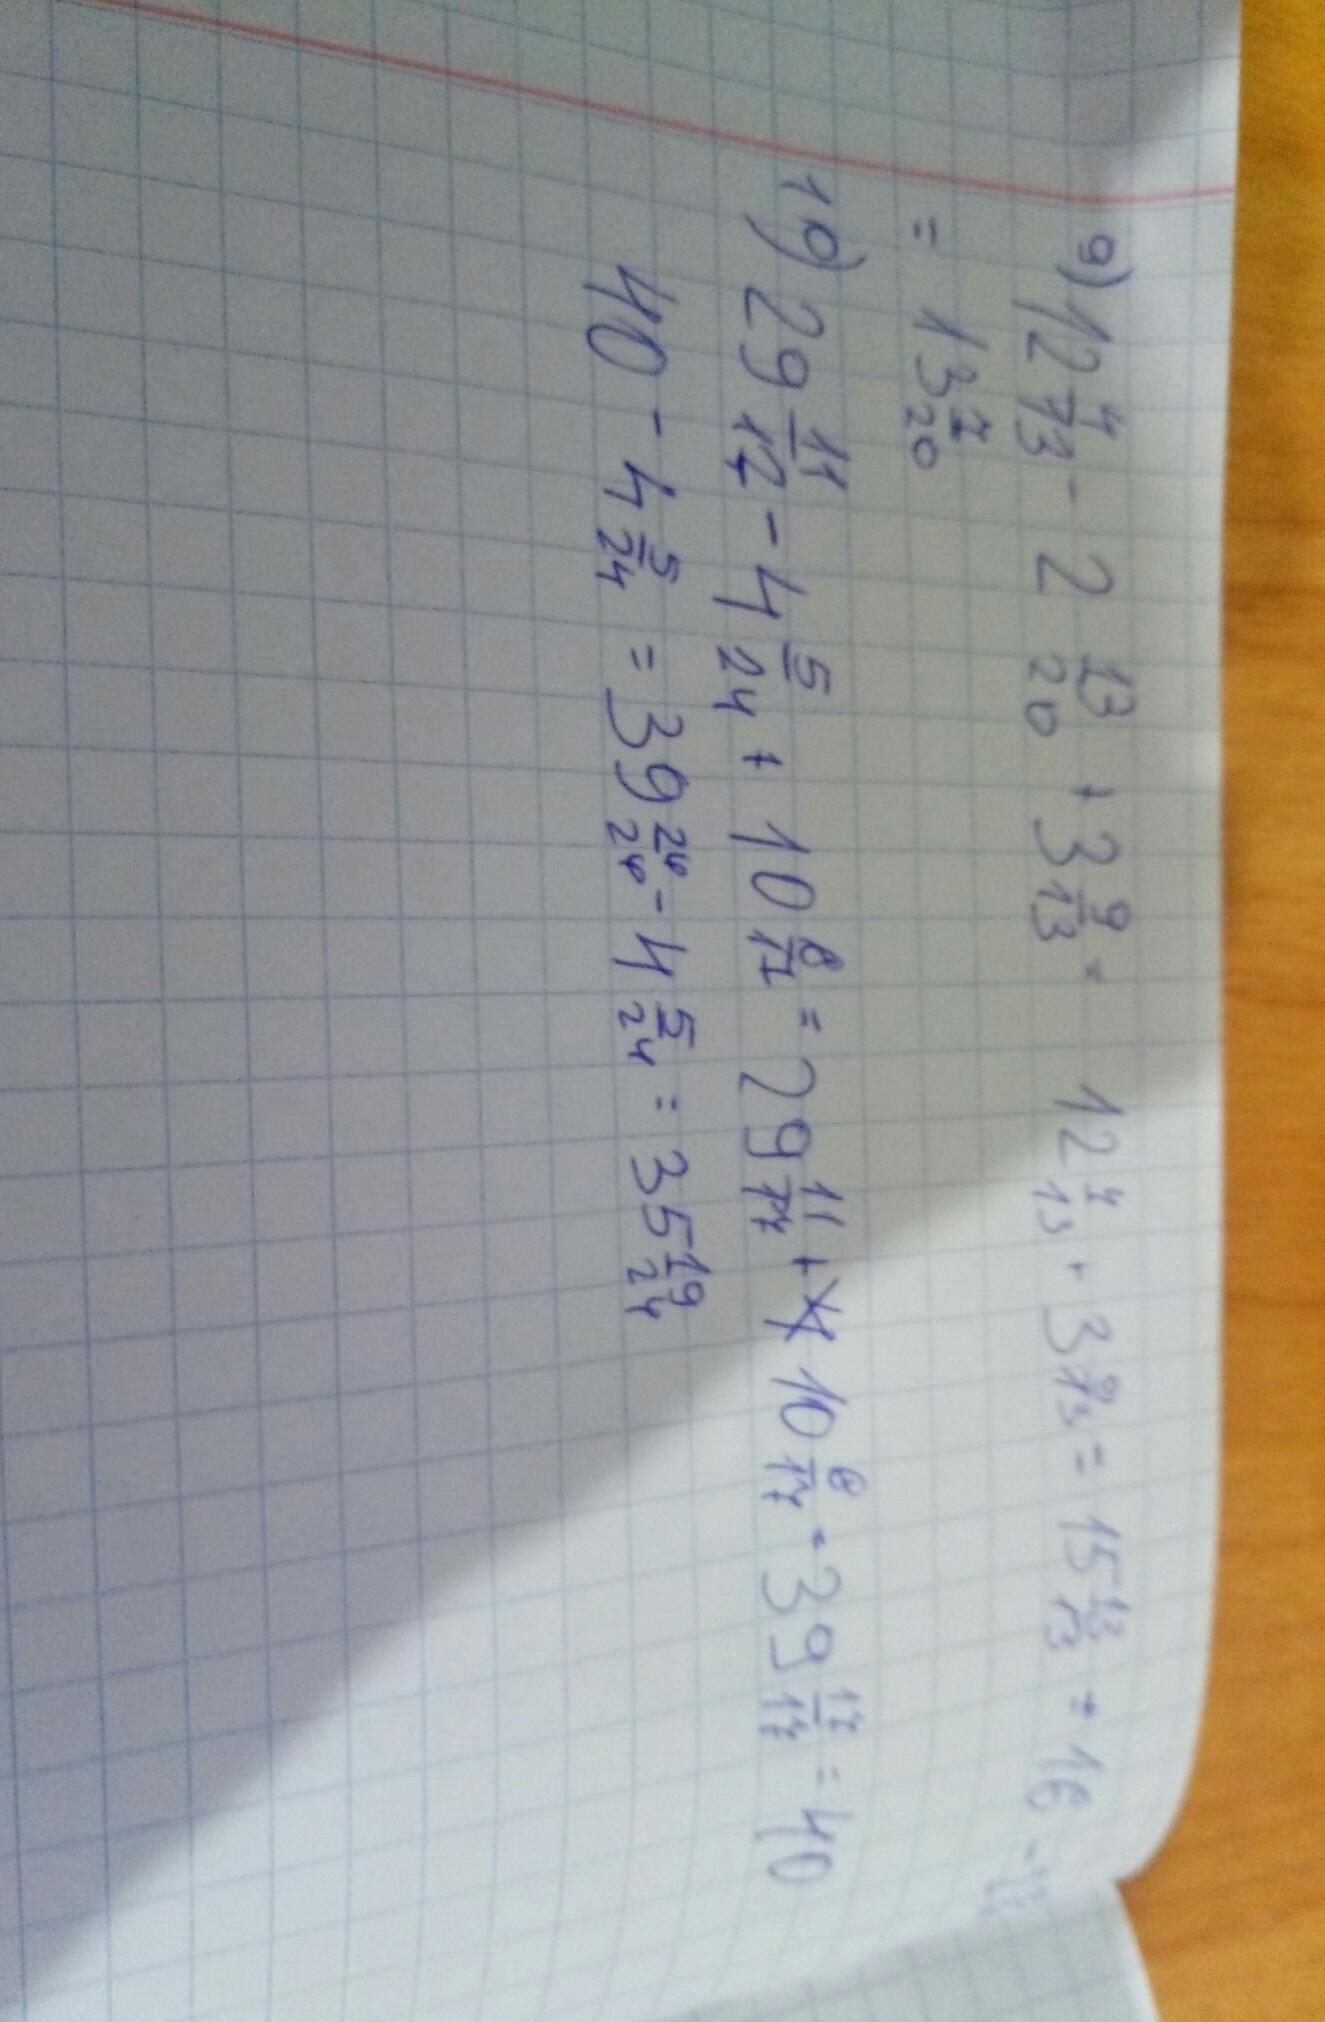 9) 12 4/13 - 2 13/20 + 3 9/13 = 12 4/13 + 3 9/13 = 15 13/13 = 16 -
= 13 7/20
10) 29 11/17 - 4 5/24 + 10 6/17 = 29 11/17 + 10 6/17 = 39 17/17 = 40
40 - 4 5/24 = 39 24/24 - 4 5/24 = 35 19/24